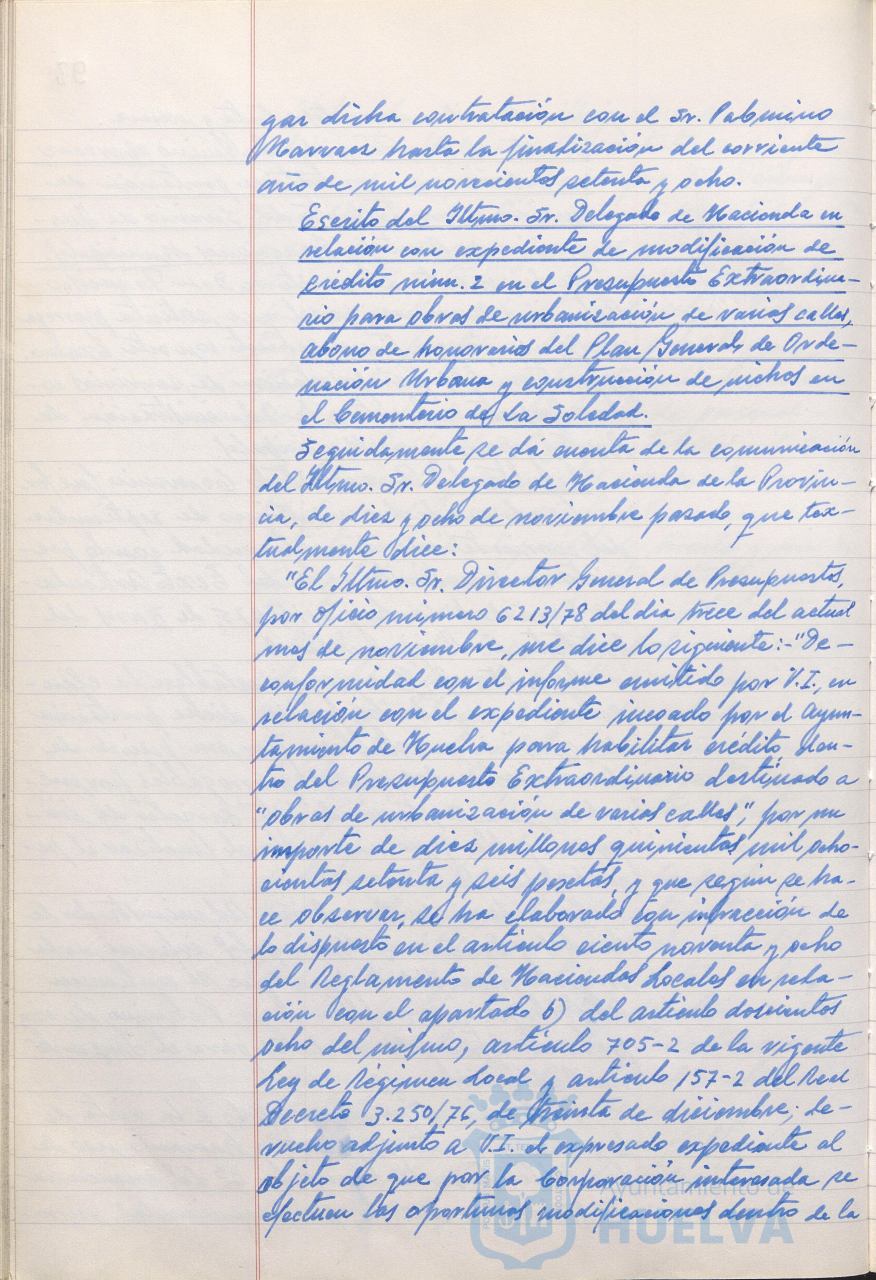 gar dicha contratación con el Sr. Palomino
Narvaez hasta la finalización del corriente
año de mil novecientos setenta y ocho.
Escrito del Iltmo. Sr. Delegado de Hacienda en
relación con expediente de modificación de
crédito núm. 2 en el Presupuesto Extraordina-
rio para obras de urbanización de varias calles,
abono de honorarios del Plan General de Orde-
nación Urbana y construcción de nichos en
el Cementerio de La Soledad.
Seguidamente se dá cuenta de la comunicación
del Iltmo. Sr. Delegado de Hacienda de la Provin-
cia, de diez y ocho de noviembre pasado, que tex-
tualmente dice:
"El Iltmo. Sr. Director General de Presupuestos,
por oficio número 6213/78 del dia trece del actual
mes de noviembre, me dice lo siguiente:-"De-
conformidad con el informe emitido por V.I., en
relación con el expediente incoado por el Ayun-
tamiento de Huelva para habilitar crédito den-
tro del Presupuesto Extraordinario destinado a
"obras de urbanización de varias calles", por un
importe de diez millones quinientas mil ocho-
cientas setenta y seis pesetas, y que según se ha-
ce observar, se ha elaborado con infracción de
lo dispuesto en el articulo ciento noventa y ocho
del Reglamento de Haciendas Locales en rela-
ción con el apartado b) del articulo doscientos
ocho del mismo, artículo 705-2 de la vigente
Ley de Régimen Local y articulo 157-2 del Real
Decreto 3.250/76, de treinta de diciembre; de-
vuelvo adjunto a V.I. el expresado expediente al
objeto de que por la Corporación interesada se
efectuen las oportunas modificaciones dentro de la
Ayuntamiento de
HUELVA